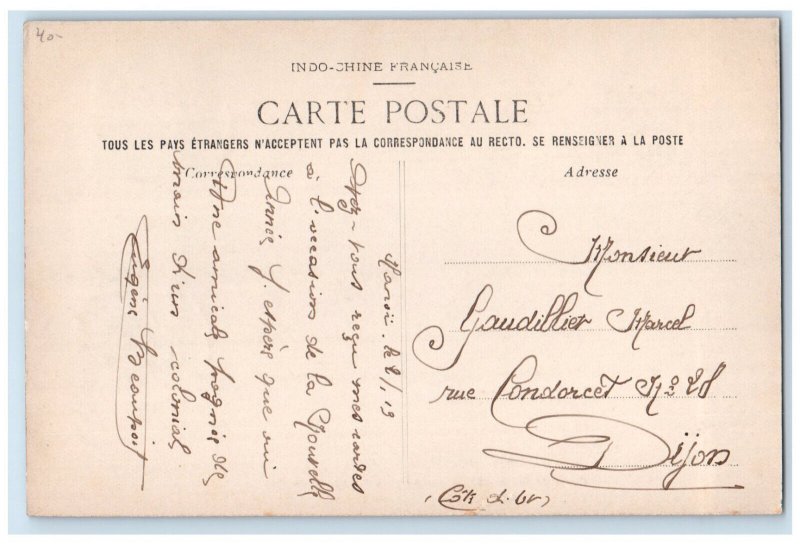 40-
INDO-CHINE FRANÇAISE
CARTE POSTALE
TOUS LES PAYS ÉTRANGERS N'ACCEPTENT PAS LA CORRESPONDANCE AU RECTO. SE RENSEIGNER A LA POSTE
Correspondance
Adresse
Hanoi le 2/1 13
Avez-vous reçu mes cartes
à l'occasion de la Nouvelle
Année J. espère que oui
Une amicale poignée de
main d'un colonial
Eugène Beaupoit
Monsieur
Gaudillier Marcel
rue Condorcet No 28
Dijon
(Côte d. Or)